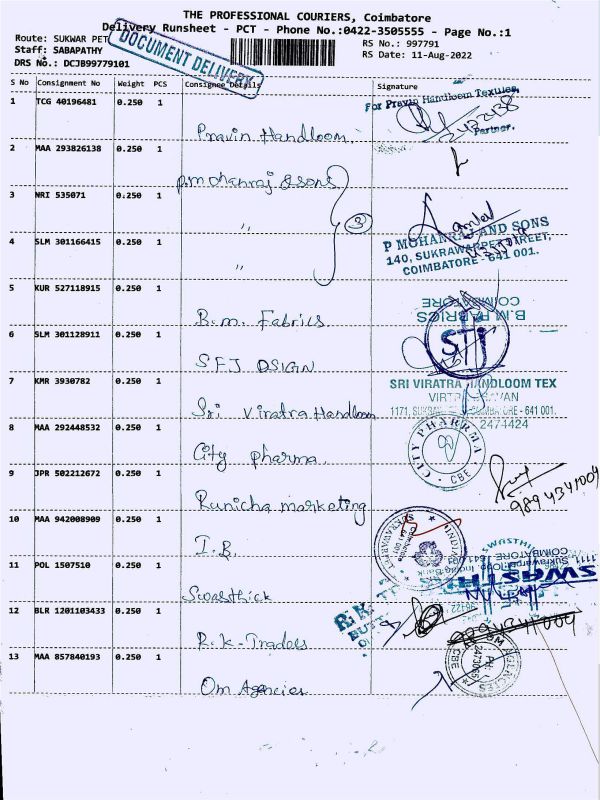 THE PROFESSIONAL COURIERS, Coimbatore
Delivery Runsheet - PCT - Phone No.:0422-3505555 - Page No.:1
Route: SUKWAR PET
RS No.: 997791
Staff: SABAPATHY
RS Date: 11-Aug-2022
DRS No.: DCJB99779101
DOCUMENT DELIVERY
S No Consignment No Weight PCS Consignee Details Signature
1 TCG 40196481 0.250 1 Pravin Handloom.
For Pravin Handloom Textiles,
Partner.
2 MAA 293826138 0.250 1 P.mohanraj & sons
3 NRI 535071 0.250 1 ,,
3
4 SLM 301166415 0.250 1 ,,
P MOHANRAJ AND SONS
140, SUKRAWARPET STREET,
COIMBATORE - 641 001.
5 KUR 527118915 0.250 1 B.m. Fabrics
B.M.FABRICS
COIMBATORE
6 SLM 301128911 0.250 1 SFJ DSIGN
STJ
7 KMR 3930782 0.250 1 Sri Viratra Handloom
SRI VIRATRA HANDLOOM TEX
1171, SUKRAWARPET, COIMBATORE - 641 001.
2474424
8 MAA 292448532 0.250 1 City pharma
CITY PHARRMA
CBE
9 JPR 502212672 0.250 1 Runicha marketing
9894341009
10 MAA 942008909 0.250 1 I.B.
INDIAN
11 POL 1507510 0.250 1 Swasthick
SWASTHI
COIMBATORE
12 BLR 1201103433 0.250 1 R.K-Traders
R.K.
9894341009
13 MAA 857840193 0.250 1 Om Agencies
AGENCIES
CBE